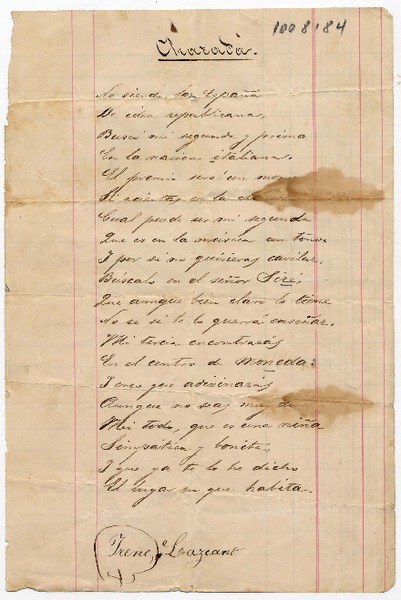 1008184
Charada.
No siendo por España
De idea republicana,
Busca mi segunda y prima
En la nacion italiana.
El premio será un mono
Si aciertas en la
Cual puede ser mi segunda
Que es en la música un tono
I por si no quisieras cavilar,
Búscalo en el señor Siré,
Que aunque bien claro lo tiene
No se si te lo querrá enseñar.
Mi tercia encontrarás
En el centro de moneda:
I creo que adivinarás
Aunque no seas muy
Mi todo, que es una niña
Simpática y bonita,
I que ya te lo he dicho
El lugar en que habita.
Irene Lazcano